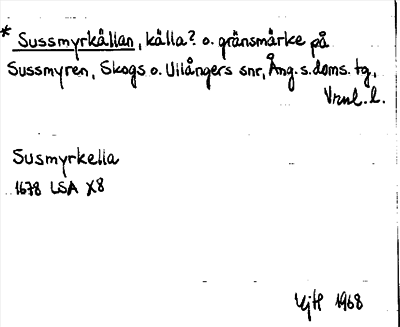 * Sussmyrkällan, källa? o. gränsmärke på
Sussmyren, Skogs o. Ullångers snr, Ång. s. doms. tg,
Vrml. l.
Susmyrkella
1678 LSA X8
UjH 1968